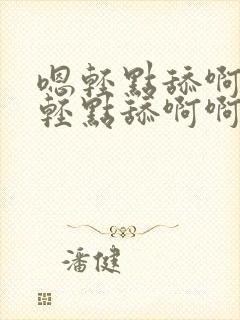 嗯輕點舔啊
輕點舔啊啊
潘健